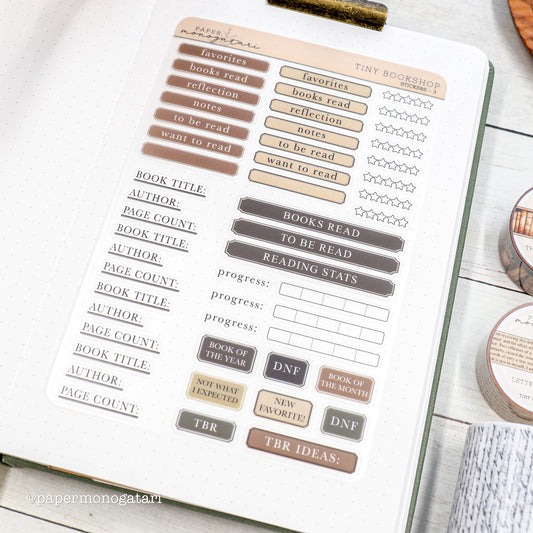 PAPER
monogatari
TINY BOOKSHOP
STICKERS - 3
favorites
books read
reflection
notes
to be read
want to read
favorites
books read
reflection
notes
to be read
want to read
BOOK TITLE:
AUTHOR:
PAGE COUNT:
BOOK TITLE:
AUTHOR:
PAGE COUNT:
BOOK TITLE:
AUTHOR:
PAGE COUNT:
BOOK TITLE:
AUTHOR:
PAGE COUNT:
BOOKS READ
TO BE READ
READING STATS
progress:
progress:
progress:
BOOK OF
THE YEAR
DNF
BOOK OF
THE MONTH
NOT WHAT
I EXPECTED
NEW
FAVORITE!
DNF
TBR
TBR IDEAS:
@papermonogatari